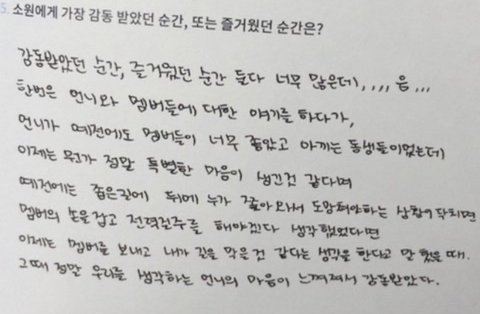 5. 소원에게 가장 감동 받았던 순간, 또는 즐거웠던 순간은?
감동받았던 순간, 즐거웠던 순간 둘다 너무 많은데,,,, 음...
한번은 언니와 멤버들에 대한 얘기를 하다가,
언니가 예전에도 멤버들이 너무 좋았고 아끼는 동생들이었는데
이제는 뭔가 정말 특별한 마음이 생긴것 같다며
예전에는 좁은길에 뒤에 누가 쫓아와서 도망쳐야하는 상황이 닥치면
멤버의 손을잡고 전력질주를 해야겠다 생각했었다면
이제는 멤버를 보내고 내가 길을 막을것 같다는 생각을 한다고 말 했을 때.
그때 정말 우리를 생각하는 언니의 마음이 느껴져서 감동받았다.